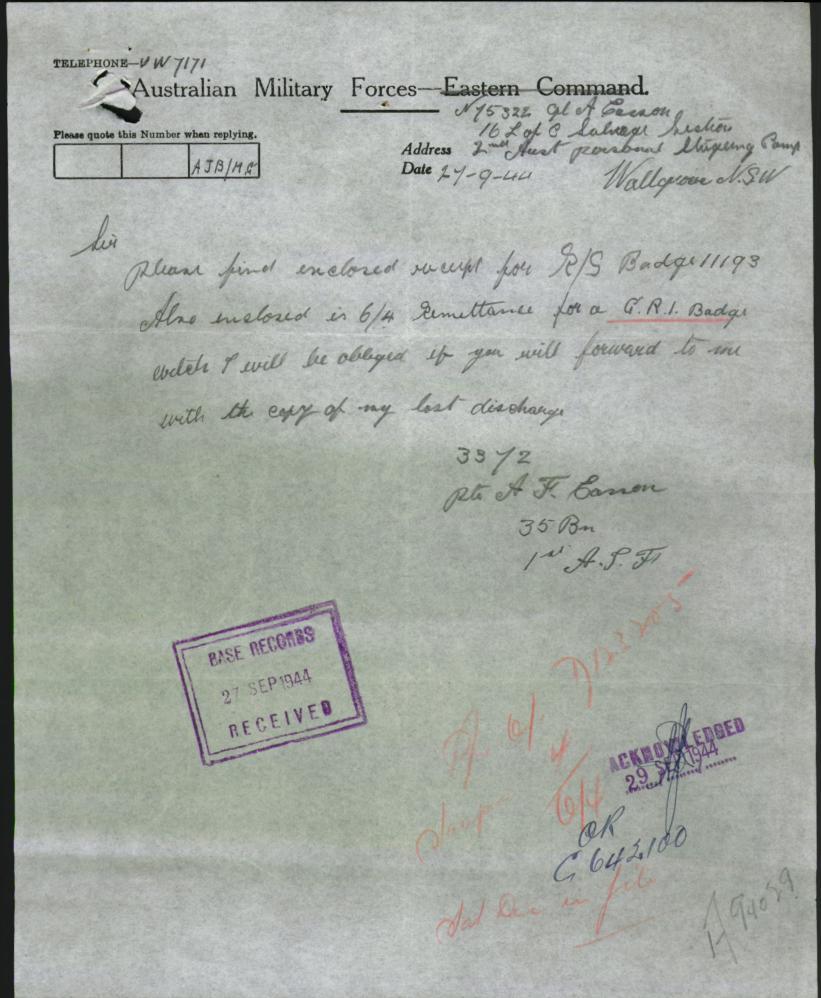 TELEPHONE—UW 7171
Australian Military Forces—Eastern Command.
N75322 Gl A Casson
16 L of C Salvage Section
Please quote this Number when replying.
Address 2nd Aust personal Staging Camp
AJB/HG
Date 27-9-44 Wallgrove N.S.W
Sir
Please find enclosed receipt for R/S Badge 11193
Also enclosed is 6/4 Remittance for a G.R.I. Badge
witch I will be obliged if you will forward to me
with the copy of my lost discharge
3372
Pte A F. Casson
35 Bn
1st A.I.F
BASE RECORDS
27 SEP 1944
RECEIVED
ACKNOWLEDGED
29 SEP 1944
6/4
OR
C 642100
Stat Dec in file